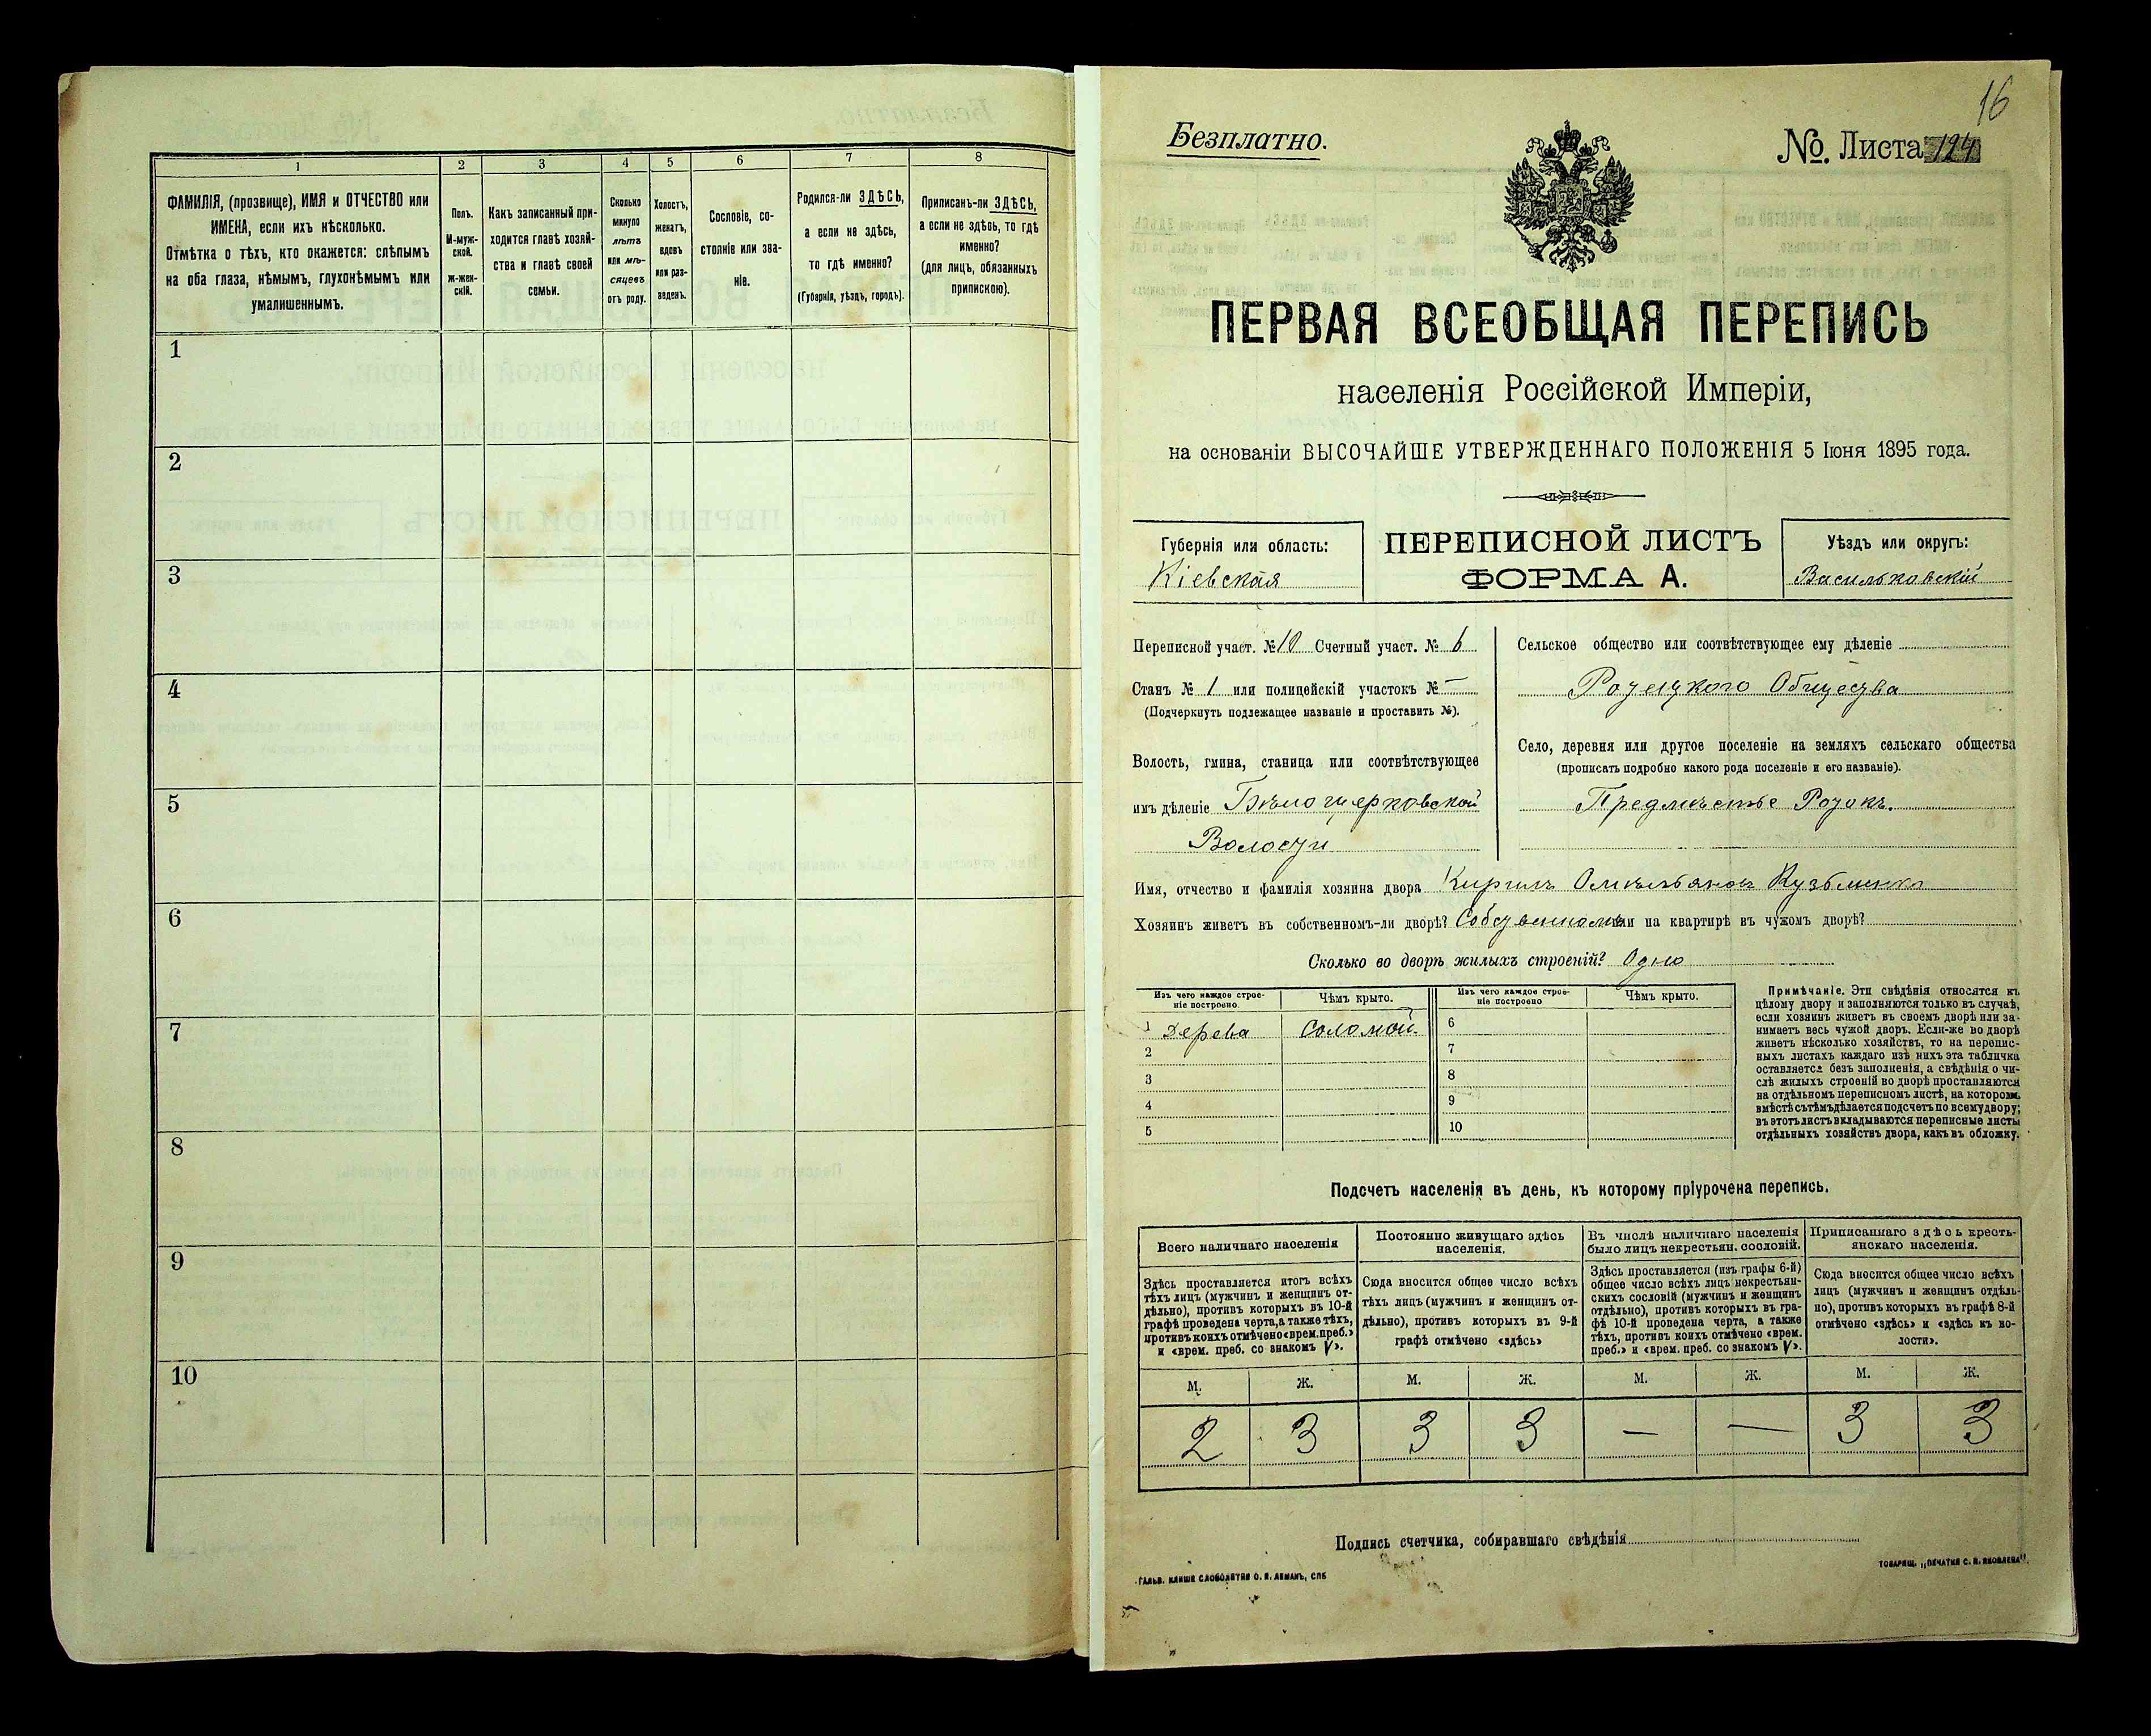 1
2
3
4
5
6
7
8
ФАМИЛІЯ, (прозвище), ИМЯ и ОТЧЕСТВО или
ИМЕНА, если ихъ нѣсколько.
Отмѣтка о тѣхъ, кто окажется: слѣпымъ
на оба глаза, нѣмымъ, глухонѣмымъ или
умалишеннымъ.
Полъ.
М-муж-
ской.
ж-жен-
скій.
Какъ записанный при-
ходится главѣ хозяй-
ства и главѣ своей
семьи.
Сколько
минуло
лѣтъ
или мѣ-
сяцевъ
отъ роду.
Холостъ,
женатъ,
вдовъ
или раз-
веденъ.
Сословіе, со-
стояніе или зва-
ніе.
Родился-ли ЗДѢСЬ,
а если не здѣсь,
то гдѣ именно?
(Губернія, уѣздъ, городъ).
Приписанъ-ли ЗДѢСЬ,
а если не здѣсь, то гдѣ
именно?
(для лицъ, обязанныхъ
припискою).
1
2
3
4
5
6
7
8
9
10
16
Безплатно.
№. Листа 124
ПЕРВАЯ ВСЕОБЩАЯ ПЕРЕПИСЬ
населенія Россійской Имперіи,
на основаніи ВЫСОЧАЙШЕ УТВЕРЖДЕННАГО ПОЛОЖЕНІЯ 5 Іюня 1895 года.
Губернія или область:
Кіевская
ПЕРЕПИСНОЙ ЛИСТЪ
ФОРМА А.
Уѣздъ или округъ:
Васильковскій
Переписной участ. № 10 Счетный участ. № 6
Станъ № 1 или полицейскій участокъ № —
(Подчеркнуть подлежащее названіе и проставить №).
Волость, гмина, станица или соотвѣтствующее
имъ дѣленіе Бѣлоцерковской
Волости
Сельское общество или соотвѣтствующее ему дѣленіе
Ротецкого Общества
Село, деревня или другое поселеніе на земляхъ сельскаго общества
(прописать подробно какого рода поселеніе и его названіе).
Предмѣстье Ротокъ.
Имя, отчество и фамилія хозяина двора Кирилъ Омельяновъ Кузьменко
Хозяинъ живетъ въ собственномъ-ли дворѣ? Собственномъ или на квартирѣ въ чужомъ дворѣ?
Сколько во дворѣ жилыхъ строеній? Одно
Изъ чего каждое строе-
ніе построено.
Чѣмъ крыто.
Изъ чего каждое строе-
ніе построено
Чѣмъ крыто.
1 Дерева Соломой. 6
2 7
3 8
4 9
5 10
Примѣчаніе. Эти свѣдѣнія относятся къ
цѣлому двору и заполняются только въ случаѣ,
если хозяинъ живетъ въ своемъ дворѣ или за-
нимаетъ весь чужой дворъ. Если-же во дворѣ
живетъ нѣсколько хозяйствъ, то на перепис-
ныхъ листахъ каждаго изъ нихъ эта табличка
оставляется безъ заполненія, а свѣдѣнія о чи-
слѣ жилыхъ строеній во дворѣ проставляются
на отдѣльномъ переписномъ листѣ, на которомъ
вмѣстѣ съ тѣмъ дѣлается подсчетъ по всему двору;
въ этотъ листъ вкладываются переписные листы
отдѣльныхъ хозяйствъ двора, какъ въ обложку.
Подсчетъ населенія въ день, къ которому пріурочена перепись.
Всего наличнаго населенія
Здѣсь проставляется итогъ всѣхъ
тѣхъ лицъ (мужчинъ и женщинъ от-
дѣльно), противъ которыхъ въ 10-й
графѣ проведена черта, а также тѣхъ,
противъ коихъ отмѣчено «врем. преб.»
и «врем. преб. со знакомъ V».
Постоянно живущаго здѣсь
населенія.
Сюда вносится общее число всѣхъ
тѣхъ лицъ (мужчинъ и женщинъ от-
дѣльно), противъ которыхъ въ 9-й
графѣ отмѣчено «здѣсь»
Въ числѣ наличнаго населенія
было лицъ некрестьян. сословій.
Здѣсь проставляется (изъ графы 6-й)
общее число всѣхъ лицъ некрестьян-
скихъ сословій (мужчинъ и женщинъ
отдѣльно), противъ которыхъ въ гра-
фѣ 10-й проведена черта, а также
тѣхъ, противъ коихъ отмѣчено «врем.
преб.» и «врем. преб. со знакомъ V».
Приписаннаго здѣсь кресть-
янскаго населенія.
Сюда вносится общее число всѣхъ
лицъ (мужчинъ и женщинъ отдѣль-
но), противъ которыхъ въ графѣ 8-й
отмѣчено «здѣсь» и «здѣсь къ во-
лости».
М. Ж. М. Ж. М. Ж. М. Ж.
2 3 3 3 — — 3 3
Подпись счетчика, собиравшаго свѣдѣнія
ГАЛЬВ. КЛИШЕ СЛОВОЛИТНИ О. И. ЛЕМАНЪ, СПБ
ТОВАРИЩ. „ПЕЧАТНЯ С. П. ЯКОВЛЕВА“.